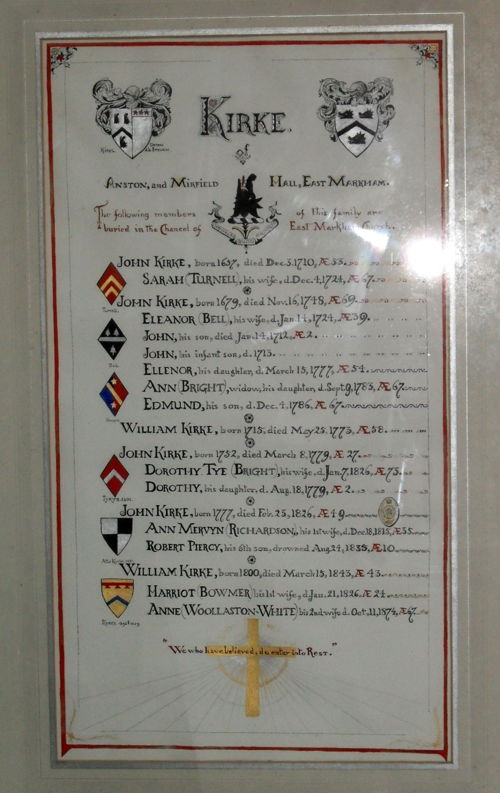 KIRKE.
of
ANSTON, and MIRFIELD HALL, EAST MARKHAM.
The following members of this family are
buried in the Chancel of East Markham Church.
JOHN KIRKE, born 1657, died Dec. 3, 1710, Æ 53.
SARAH (TURNELL), his wife, d. Dec. 4, 1724, Æ 67.
JOHN KIRKE, born 1679, died Nov. 16, 1748, Æ 69.
ELEANOR (BELL), his wife, d. Jan. 14, 1724, Æ 39.
JOHN, his son, died Jan. 14, 1712, Æ 2.
JOHN, his infant son, d. 1713.
ELLENOR, his daughter, d. March 15, 1777, Æ 54.
ANN (BRIGHT), widow, his daughter, d. Sept. 9, 1783, Æ 67.
EDMUND, his son, d. Dec. 4, 1786, Æ 67.
WILLIAM KIRKE, born 1715, died May 25, 1773, Æ 58.
JOHN KIRKE, born 1752, died March 8, 1779, Æ 27.
DOROTHY TYE (BRIGHT), his wife, d. Jan. 7, 1826, Æ 73.
DOROTHY, his daughter, d. Aug. 18, 1779, Æ 2.
JOHN KIRKE, born 1777, died Feb. 25, 1826, Æ 49.
ANN MERVYN (RICHARDSON), his 1st wife, d. Dec. 18, 1815, Æ 35.
ROBERT PIERCY, his 6th son, drowned Aug. 24, Æ 10.
WILLIAM KIRKE, born 1800, died March 15, 1843, Æ 43.
HARRIOT (BOWMER) his 1st wife, d. Jan. 21, 1826. Æ 24
ANNE (WOOLLASTON-WHITE) his 2nd wife d. Oct. 11, 1874, Æ 67.
"We who have believed, do enter into REST."